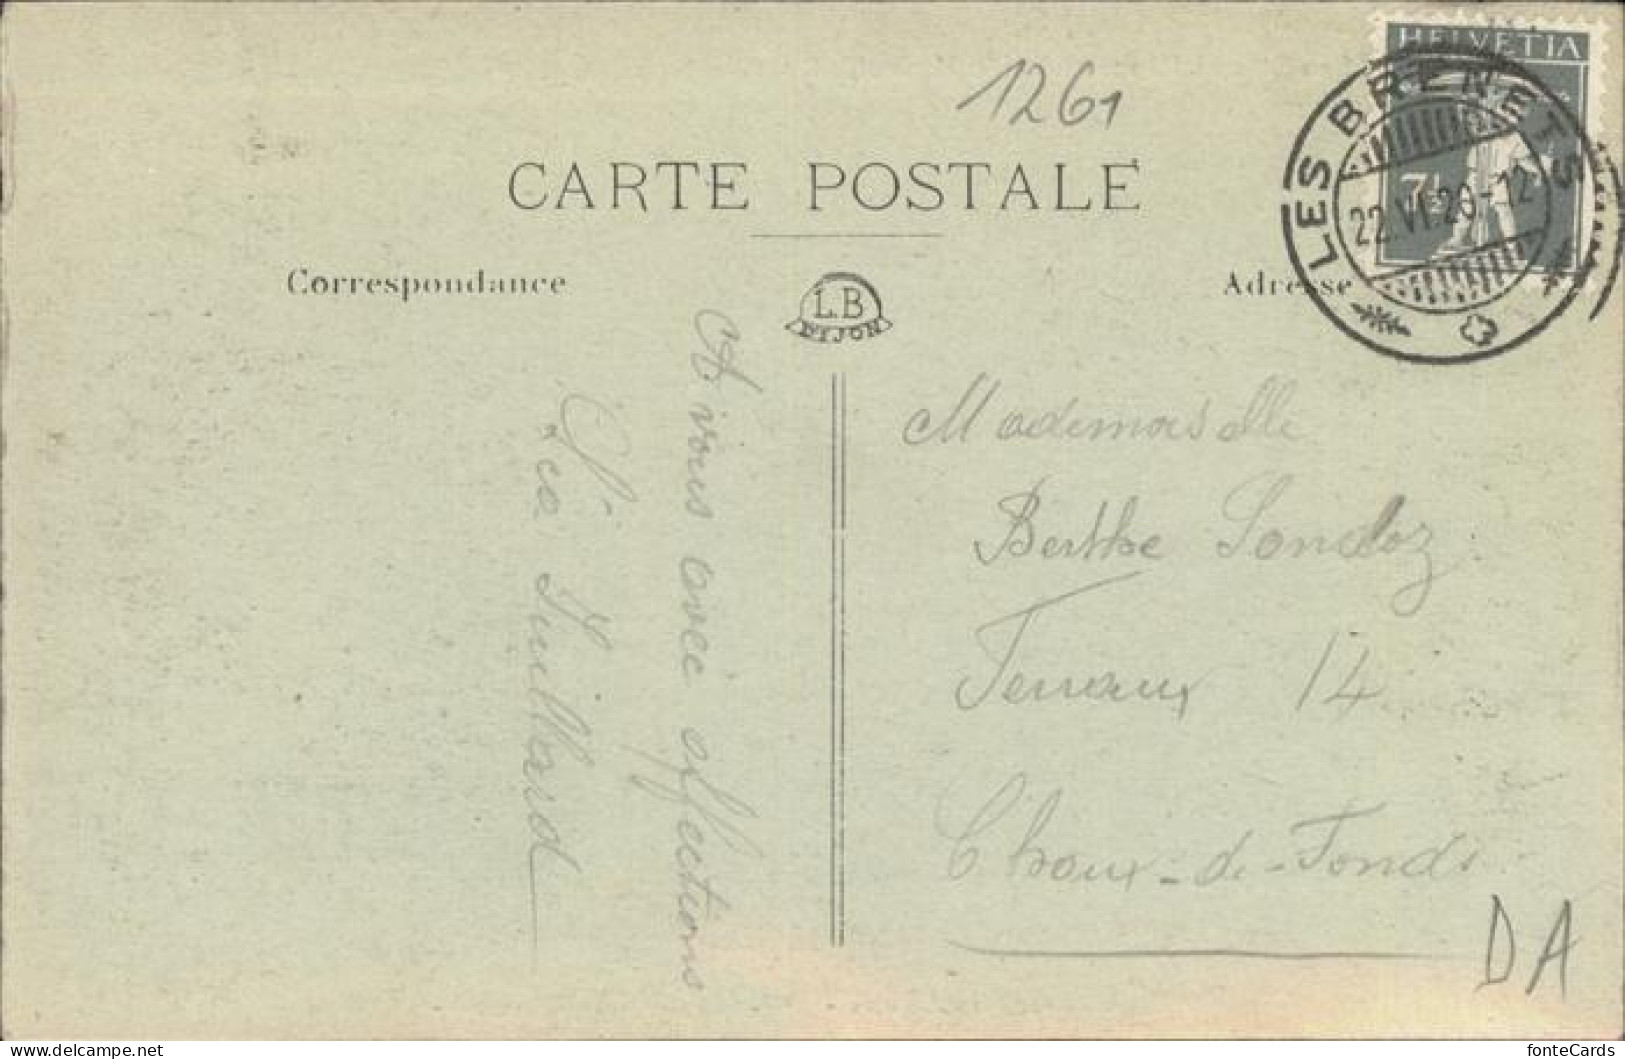 1261
HELVETIA
LES BRENETS
22.VI.20-12
7½
CARTE POSTALE
Correspondance
L.B
DIJON
Adresse
A vous avec affections
Léa Juillard
Mademoiselle
Berthe Sandoz
Terreaux 14
Chaux-de-Fonds
DA
delcampe.net
fonteCards